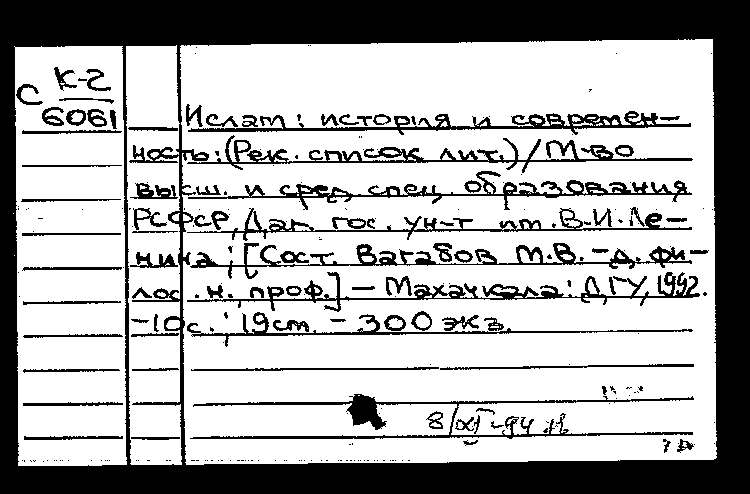 С К-2
6061
Ислам: история и современ-
ность: (Рек. список лит.) / М-во
высш. и сред. спец. образования
РСФСР, Даг. гос. ун-т им. В.И. Ле-
нина; [Сост. Вагабов М.В. - д. фи-
лос. н., проф.]. - Махачкала: ДГУ, 1992.
-10 с.; 19 cm. - 300 экз.
8/XI-94